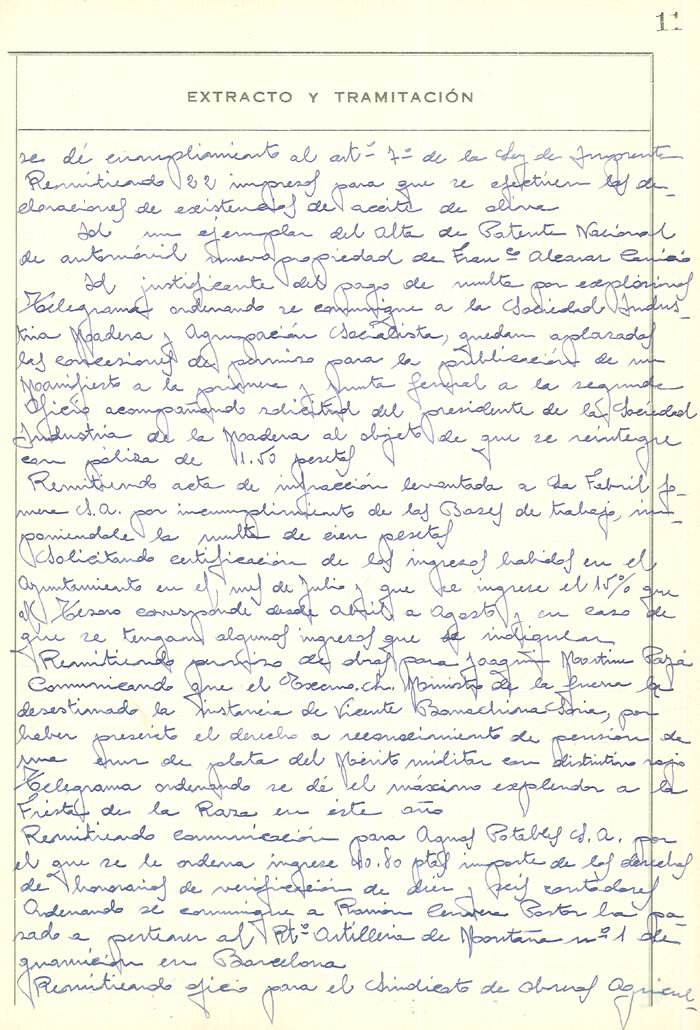 11
EXTRACTO Y TRAMITACIÓN
se dé cumplimiento al artº 7º de la Ley de Imprenta
Remitiendo 22 impresos para que se efectúen las de-
claraciones de existencias de aceite de oliva
Id un ejemplar del Alta de Patente Nacional
de automóvil nuevo propiedad de Franco Alcaraz
Id justificante del pago de multa por explosivos
Telegrama ordenando se comunique a la Sociedad Indus-
tria Madera y Agrupación Socialista, quedan aplazadas
las concesiones de permiso para la publicación de un
Manifiesto a la primera y Junta general a la segunda
Oficio acompañando solicitud del presidente de la Sociedad
Industria de la Madera al objeto de que se reintegre
con póliza de 1.50 pesetas
Remitiendo acta de infracción levantada a La Febril
S.A. por incumplimiento de las Bases de trabajo, im-
poniendole la multa de cien pesetas
Solicitando certificación de los ingresos habidos en el
Ayuntamiento en el mes de Julio y que se ingrese el 15% que
al Tesoro corresponde desde Abril a Agosto y en caso de
que se tengan algunos ingresos que se indiquen
Remitiendo permiso de obras para Joaquin Martinez Pazá
Comunicando que el Excmo. Sr. Ministro de la Guerra ha
desestimado la instancia de Vicente Soria, por
haber prescrito el derecho a reconocimiento de pensión de
una cruz de plata del Mérito militar con distintivo rojo
Telegrama ordenando se dé el máximo explendor a la
Fiesta de la Raza en éste año
Remitiendo comunicación para Aguas Potables S.A. por
el que se le ordena ingrese 40.80 ptas importe de los derechos
de honorarios de verificación de diez y seis contadores
Ordenando se comunique a Ramón Cervera Pastor ha pa-
sado a pertenecer al Rtº Artilleria de Montaña nº 1 de
guarnición en Barcelona
Remitiendo oficio para el Sindicato de Obreros Agricul-